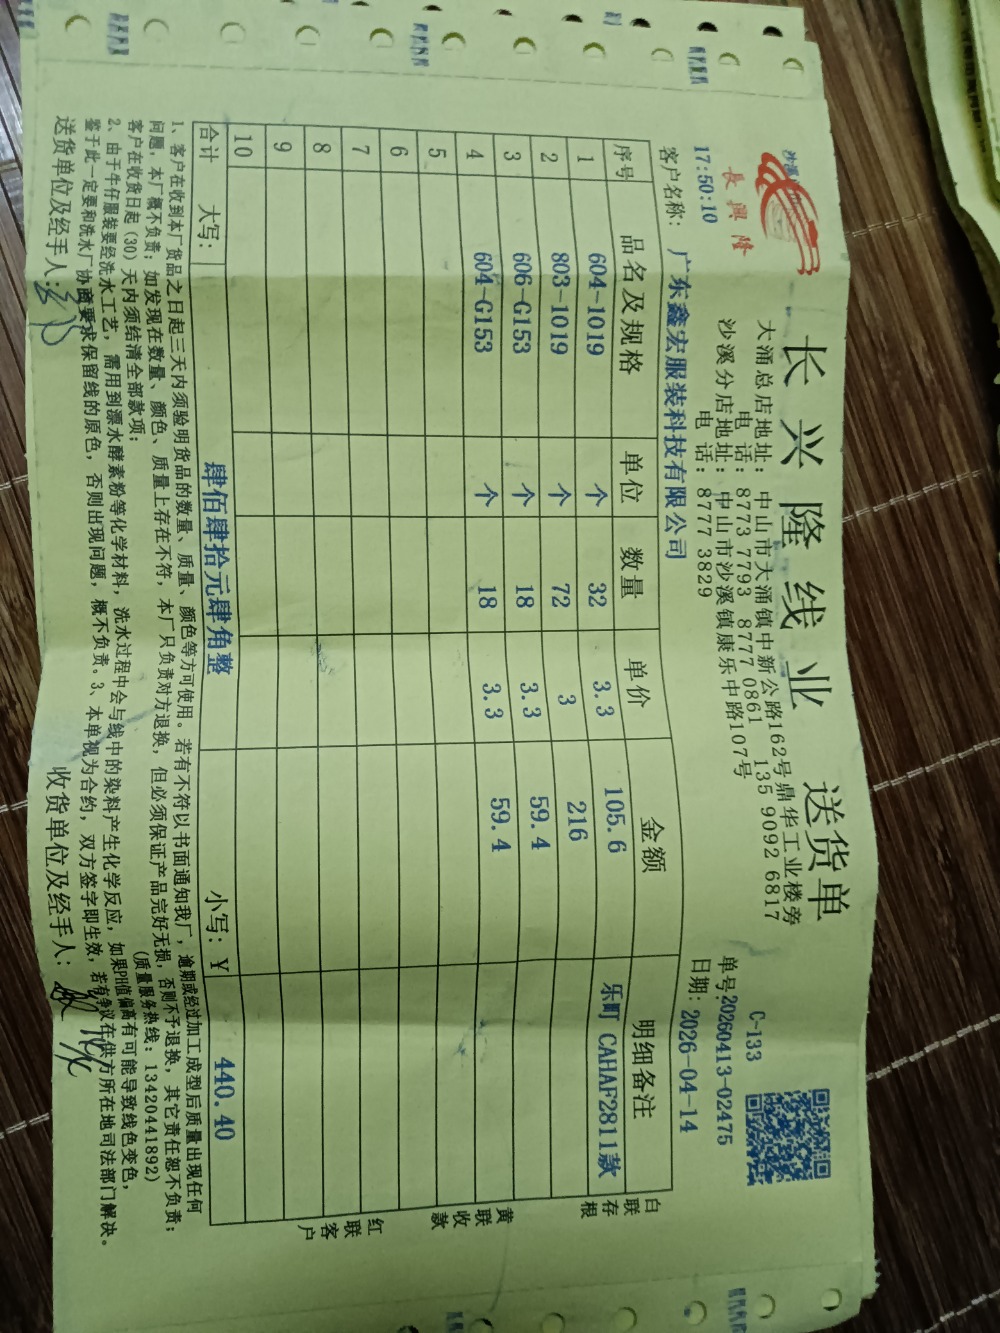 長興隆
长兴隆线业 送货单
C-133
大涌总店地址：中山市大涌镇中新公路162号鼎华工业楼旁
电 话：8773 7793 8777 0861 135 9092 6817
沙溪分店地址：中山市沙溪镇康乐中路107号
电 话：8777 3829
单号:20260413-02475
17:50:10
日期：2026-04-14
客户名称：广东鑫宏服装科技有限公司
序号 品名及规格 单位 数量 单价 金额 明细备注
1 604-1019 个 32 3.3 105.6 乐町 CAHAF2811款
2 803-1019 个 72 3 216
3 606-G153 个 18 3.3 59.4
4 604-G153 个 18 3.3 59.4
5
6
7
8
9
10
合计 大写： 肆佰肆拾元肆角整 小写：¥ 440.40
白联存根
黄联收款
红联客户
1、客户在收到本厂货品之日起三天内须验明货品的数量、质量、颜色等方可使用。若有不符以书面通知我厂，逾期或经过加工成型后质量出现任何
问题，本厂概不负责；如发现在数量、颜色、质量上存在不符，本厂只负责对方退换，但必须保证产品完好无损，否则不予退换，其它责任恕不负责；
客户在收货日起（30）天内须结清全部款项； (质量服务热线：13420441892)
2、由于牛仔服装要经洗水工艺，需用到漂水酵素粉等化学材料，洗水过程中会与线中的染料产生化学反应，如果PH值偏高有可能导致线色变色，
鉴于此一定要和洗水厂协商要求保留线的原色，否则出现问题，概不负责。3、本单视为合约，双方签字即生效，若有争议在供方所在地司法部门解决。
送货单位及经手人： 收货单位及经手人：